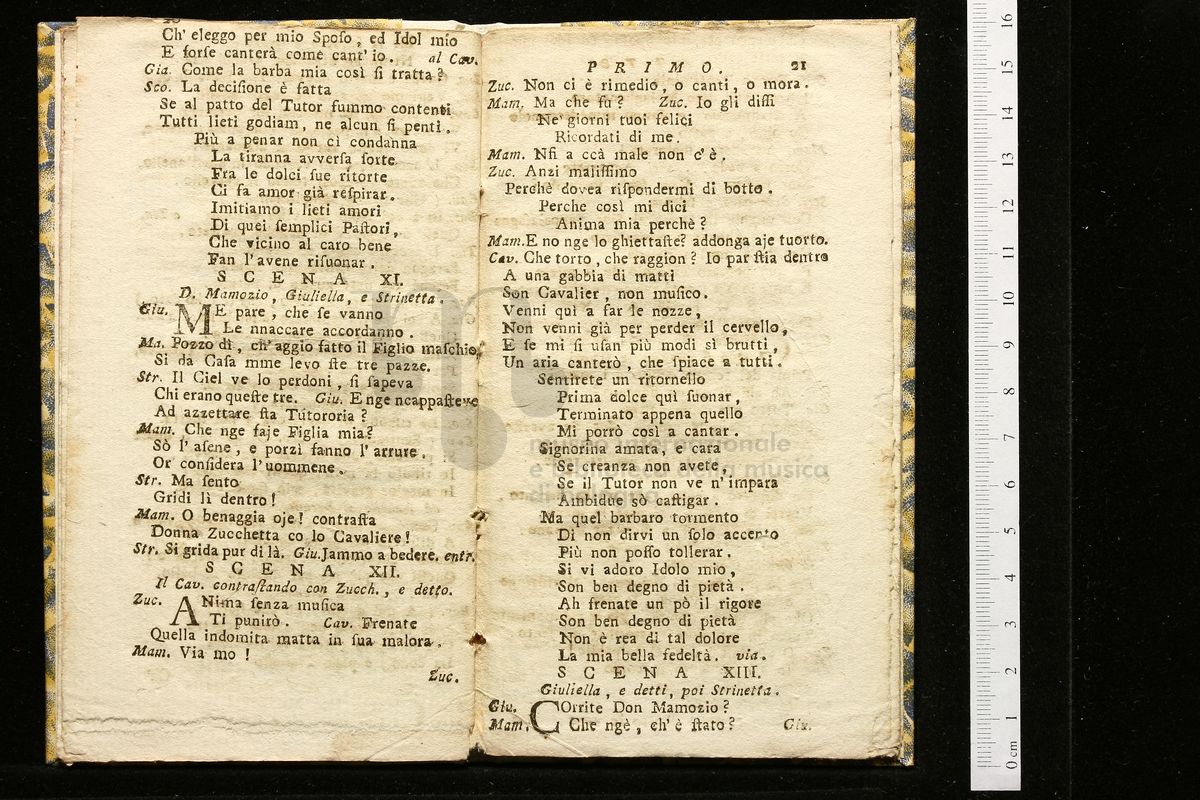 20
Ch' eleggo per mio Spoſo, ed Idol mio
E forſe canterà come cant' io. al Cav.
Gia. Come la barba mia così ſi tratta?
Sco. La deciſione è fatta
Se al patto del Tutor fummo contenti
Tutti lieti godiam, ne alcun ſi penti.
Più a penar non ci condanna
La tiranna avverſa ſorte
Fra le dolci ſue ritorte
Ci fa amor già reſpirar.
Imitiamo i lieti amori
Di quei ſemplici Paſtori,
Che vicino al caro bene
Fan l'avene riſuonar.
SCENA XI.
D. Mamozio, Giuliella, e Strinetta.
Giu. ME pare, che ſe vanno
Le nnaccare accordanno.
Ma. Pozzo dì, ch' aggio fatto il Figlio maſchio,
Si da Caſa mme levo ſte tre pazze.
Str. Il Ciel ve lo perdoni, ſi ſapeva
Chi erano queſte tre. Giu. E nge ncappaſteve
Ad azzettare ſta Tutororia?
Mam. Che nge faje Figlia mia?
Sò l'aſene, e porzì fanno l'arrure.
Or conſidera l'uommene.
Str. Ma ſento
Gridi lì dentro!
Mam. O benaggia oje! contraſta
Donna Zucchetta co lo Cavaliere!
Str. Si grida pur di là. Giu. Jammo a bedere. entr.
SCENA XII.
Il Cav. contraſtando con Zucch., e detto.
Zuc. ANima ſenza muſica
Ti punirò. Cav. Frenate
Quella indomita matta in ſua malora.
Mam. Via mo!
Zuc.
PRIMO. 21
Zuc. Non ci è rimedio, o canti, o mora.
Mam. Ma che fu? Zuc. Io gli diſſi
Ne' giorni tuoi felici
Ricordati di me.
Mam. Nfi a ccà male non c'è.
Zuc. Anzi maliſſimo
Perchè dovea riſpondermi di botto.
Perche così mi dici
Anima mia perchè?
Mam. E no nge lo ghiettaſte? addonga aje tuorto.
Cav. Che torto, che raggion? Io par ſtia dentro
A una gabbia di matti
Son Cavalier, non muſico.
Venni quì a far le nozze,
Non venni già per perder il cervello,
E ſe mi ſi uſan più modi sì brutti,
Un aria canterò, che ſpiace a tutti.
Sentirete un ritornello
Prima dolce quì ſuonar,
Terminato appena quello
Mi porrò così a cantar.
Signorina amata, e cara
Se creanza non avete,
Se il Tutor non ve n' impara
Ambidue sò caſtigar.
Ma quel barbaro tormento
Di non dirvi un ſolo accento
Più non poſſo tollerar.
Si vi adoro Idolo mio,
Son ben degno di pietà.
Ah frenate un pò il rigore
Son ben degno di pietà
Non è rea di tal dolore
La mia bella fedeltà. via.
SCENA XIII.
Giuliella, e detti, poi Strinetta.
Giu. COrrite Don Mamozio?
Mam. Che ngè, ch' è ſtato? Giu.
museo internazionale
e biblioteca della musica
0 cm 1 2 3 4 5 6 7 8 9 10 11 12 13 14 15 16